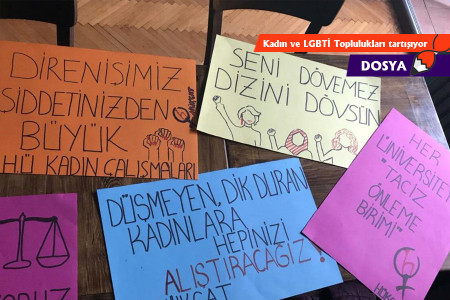 Kadın ve LGBTİ Toplulukları tartışıyor
DOSYA
DİRENİŞİMİZ
ŞİDDETİNİZDEN
BÜYÜK
HÜ KADIN ÇALIŞMALARI
SENİ DÖVEMEZ
DİZİNİ DÖVSÜN
DÜŞMEYEN, DİK DURAN
KADINLARA
HEPİNİZİ
ALIŞTIRACAĞIZ!
HER
ÜNİVERSİTEYE
"TACİZ
ÖNLEME
BİRİMİ"